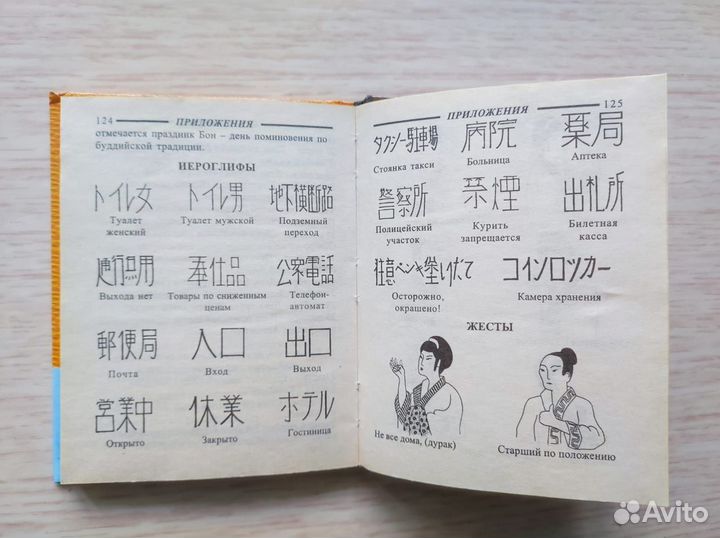 124 ПРИЛОЖЕНИЯ
отмечается праздник Бон – день поминовения по
буддийской традиции.
ИЕРОГЛИФЫ
トイレ女 トイレ男 地下横断路
Туалет женский Туалет мужской Подземный переход
奉仕品 公衆電話
Выхода нет Товары по сниженным ценам Телефон-автомат
郵便局 入口 出口
Почта Вход Выход
営業中 休業 ホテル
Открыто Закрыто Гостиница
ПРИЛОЖЕНИЯ 125
タクシー駐車場 病院 薬局
Стоянка такси Больница Аптека
警察所 禁煙 出札所
Полицейский участок Курить запрещается Билетная касса
ペンキ コインロッカー
Осторожно, окрашено! Камера хранения
ЖЕСТЫ
Не все дома, (дурак) Старший по положению
Avito